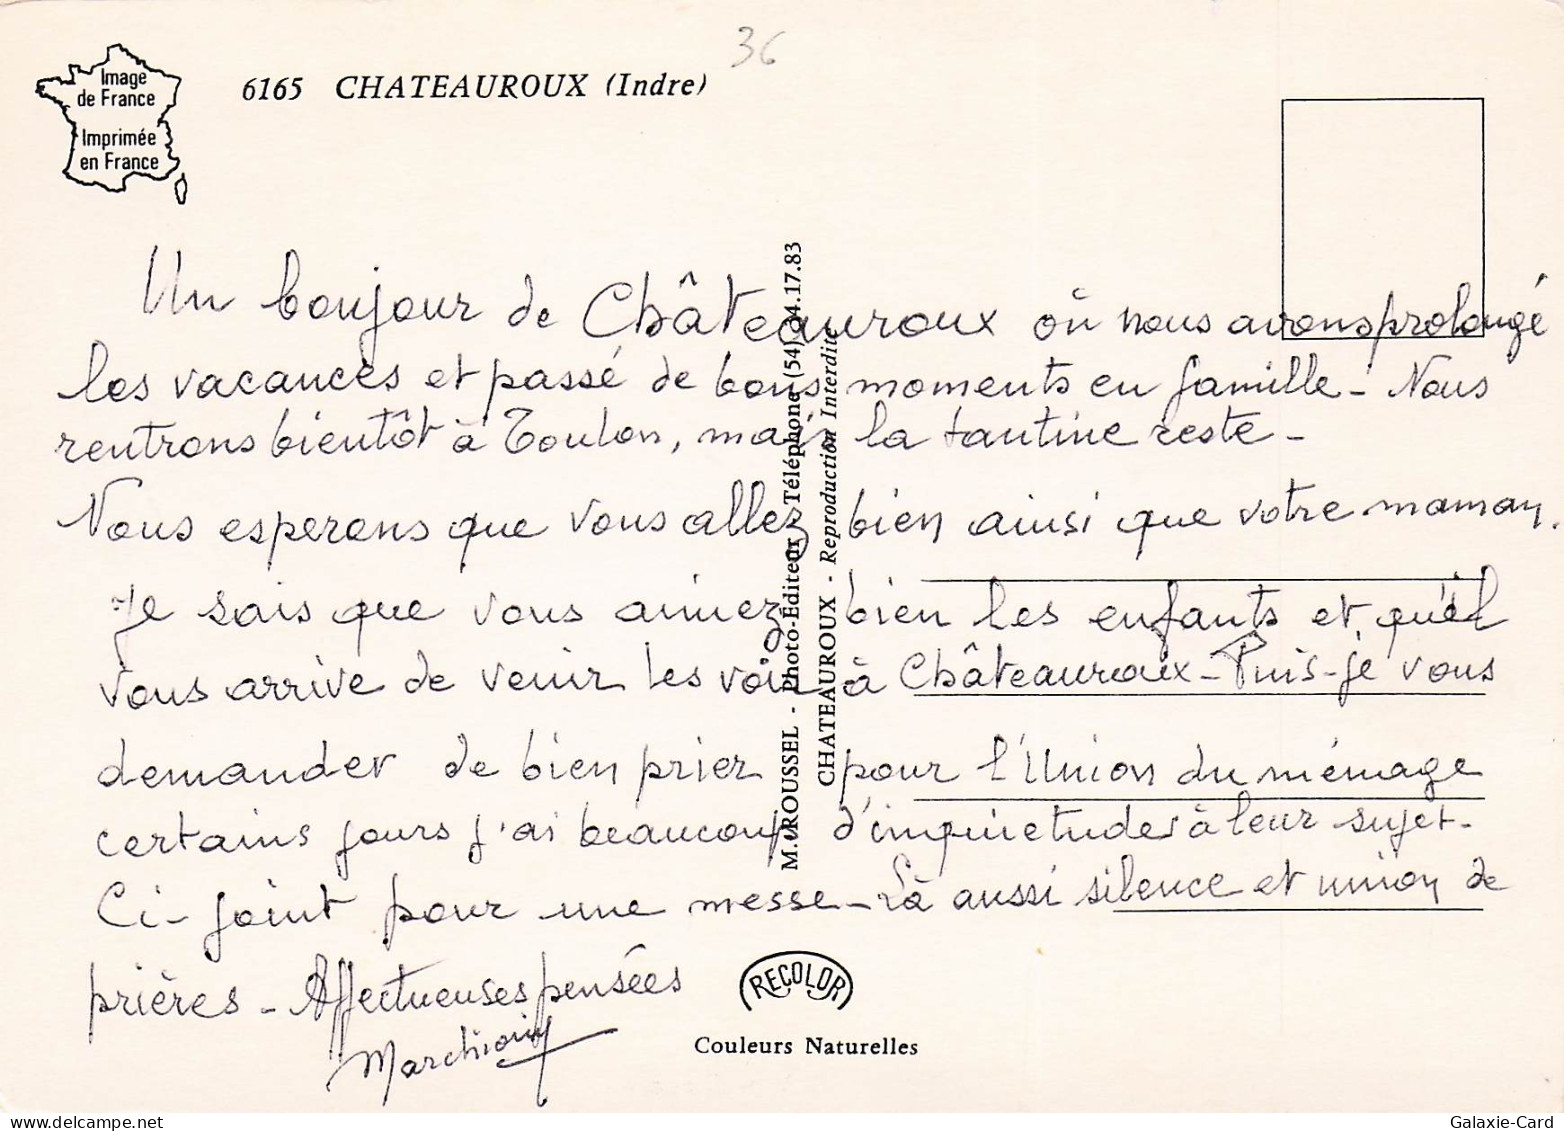 Image
de France
Imprimée
en France
6165 CHATEAUROUX (Indre)
36
Un bonjour de Châteauroux où nous avons prolongé
les vacances et passé de bons moments en famille - Nous
rentrons bientôt à Toulon, mais la tantine reste -
Nous esperons que vous allez bien ainsi que votre maman.
Je sais que vous aimez bien les enfants et qu'il
vous arrive de venir les voir à Châteauroux - Puis-je vous
demander de bien prier pour l'Union du ménage
certains jours j'ai beaucoup d'inquietudes à leur sujet -
Ci-joint pour une messe - Là aussi silence et union de
prières - Affectueuses pensées
M. ROUSSEL - Photo-Éditeur - Téléphone (54) 34.17.83
CHATEAUROUX - Reproduction Interdite
RECOLOR
Couleurs Naturelles
Galaxie-Card